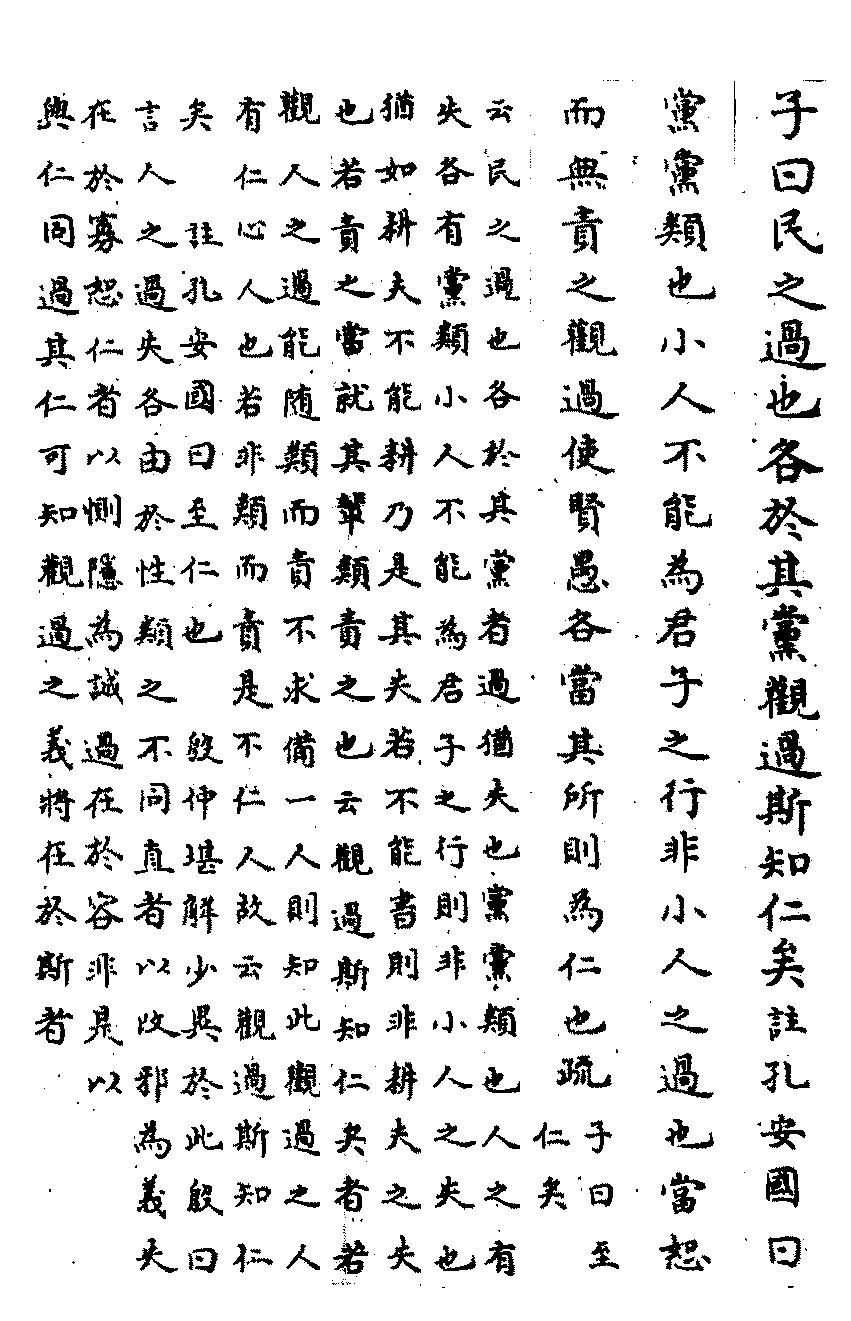 子曰民之過也各於其黨觀過斯知仁矣註孔安國曰
黨黨類也小人不能為君子之行非小人之過也當恕
而無責之觀過使賢愚各當其所則為仁也疏
子曰至
仁矣
云民之過也各於其黨者過猶失也黨黨類也人之有
失各有黨類小人不能為君子之行則非小人之失也
猶如耕夫不能耕乃是其失若不能書則非耕夫之失
也若責之當就其輩類責之也云觀過斯知仁矣者若
觀人之過能随類而責不求備一人則知此觀過之人
有仁心人也若非類而責是不仁人故云觀過斯知仁
矣 註孔安國曰至仁也 殷仲堪解少異於此殷曰
言人之過失各由於性類之不同直者以改邪為義失
在於寡恕仁者以惻隱為誠過在於容非是以
與仁同過其仁可知觀過之義將在於斯者